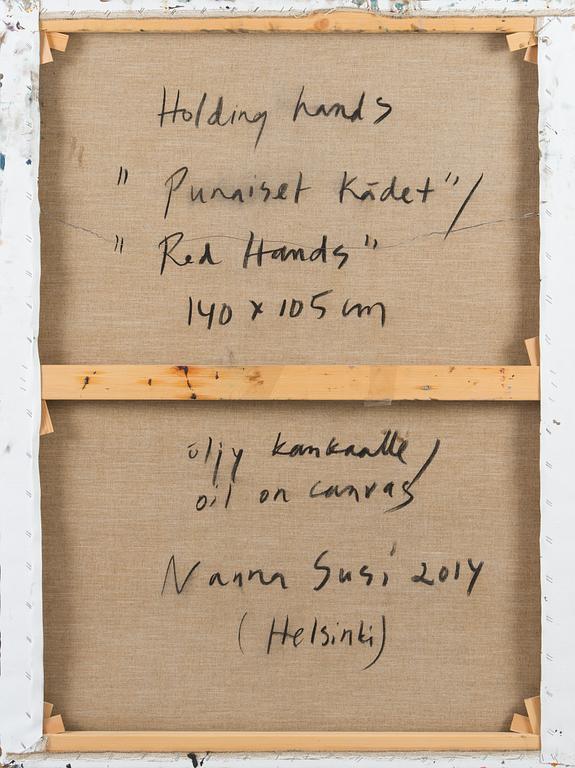 Holding hands
" Punaiset Kädet "/
" Red Hands "
140 x 105 cm
öljy kankaalle /
oil on canvas
Nanna Susi 2014
(Helsinki)